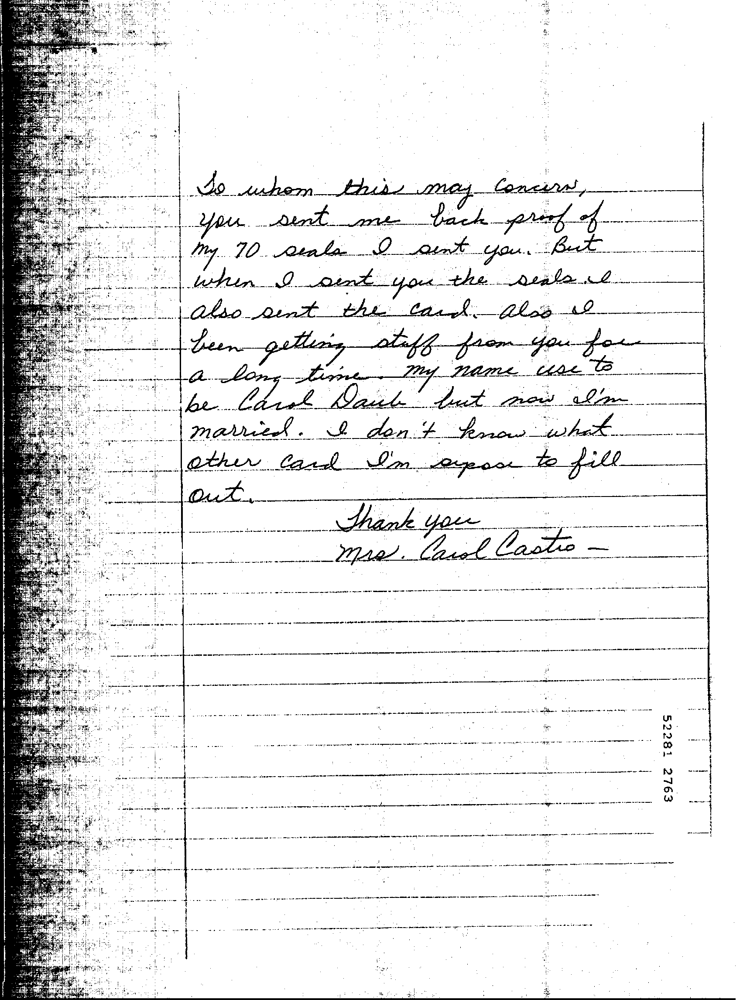 To whom this may concern,
you sent me back proof of
my 70 seals I sent you. But
when I sent you the seals I
also sent the card. Also I
been getting stuff from you for
a long time. My name use to
be Carol Daub but now I'm
married. I don't know what
other card I'm sepose to fill
out.
Thank you
Mrs. Carol Castro -
52281 2763